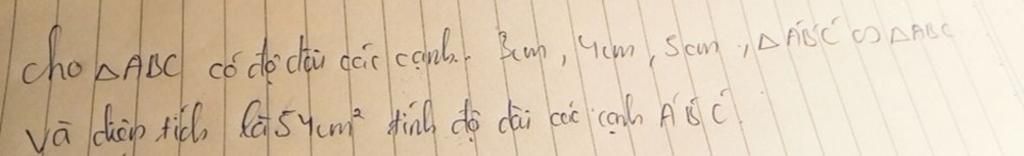 cho △ABC có độ dài các cạnh. 3cm, 4cm, 5cm, △A'B'C' ∽ △ABC
Và diện tích là 54cm² tính độ dài các cạnh A'B'C'.